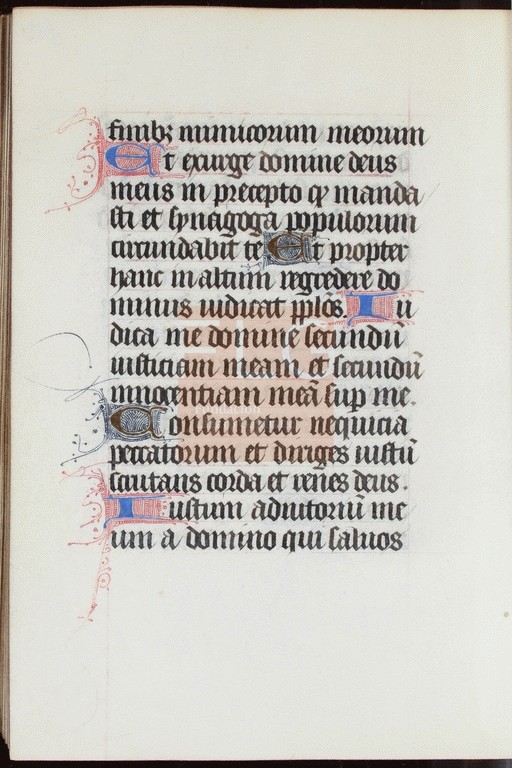 finibꝫ inimicorum meorum
Et exurge domine deus
meus in precepto qͥ manda
sti et synagoga populorum
circundabit te Et propter
hanc in altum regredere do
minus iudicat pplos. Iu
dica me domine secundū
iusticiam meam et secundū
innocentiam meā sup me.
Consumetur nequicia
peccatorum et diriges iustū
scrutans corda et renes deus.
Iustum adiutoriū me
um a domino qui saluos
FLG
Fundación